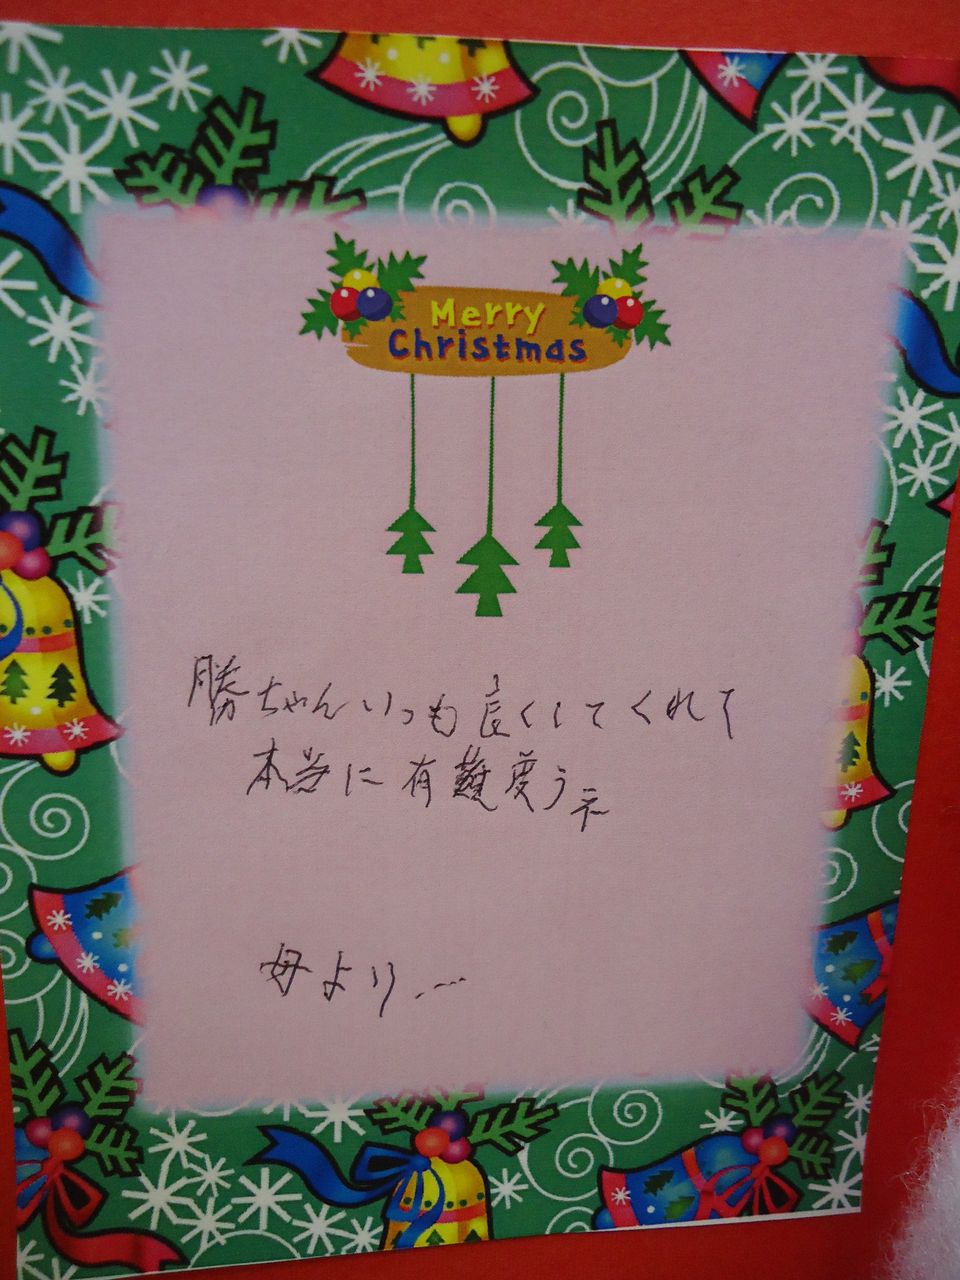 Merry
Christmas
勝ちゃんいつも良くしてくれて
本当に有難度うネ
母より…